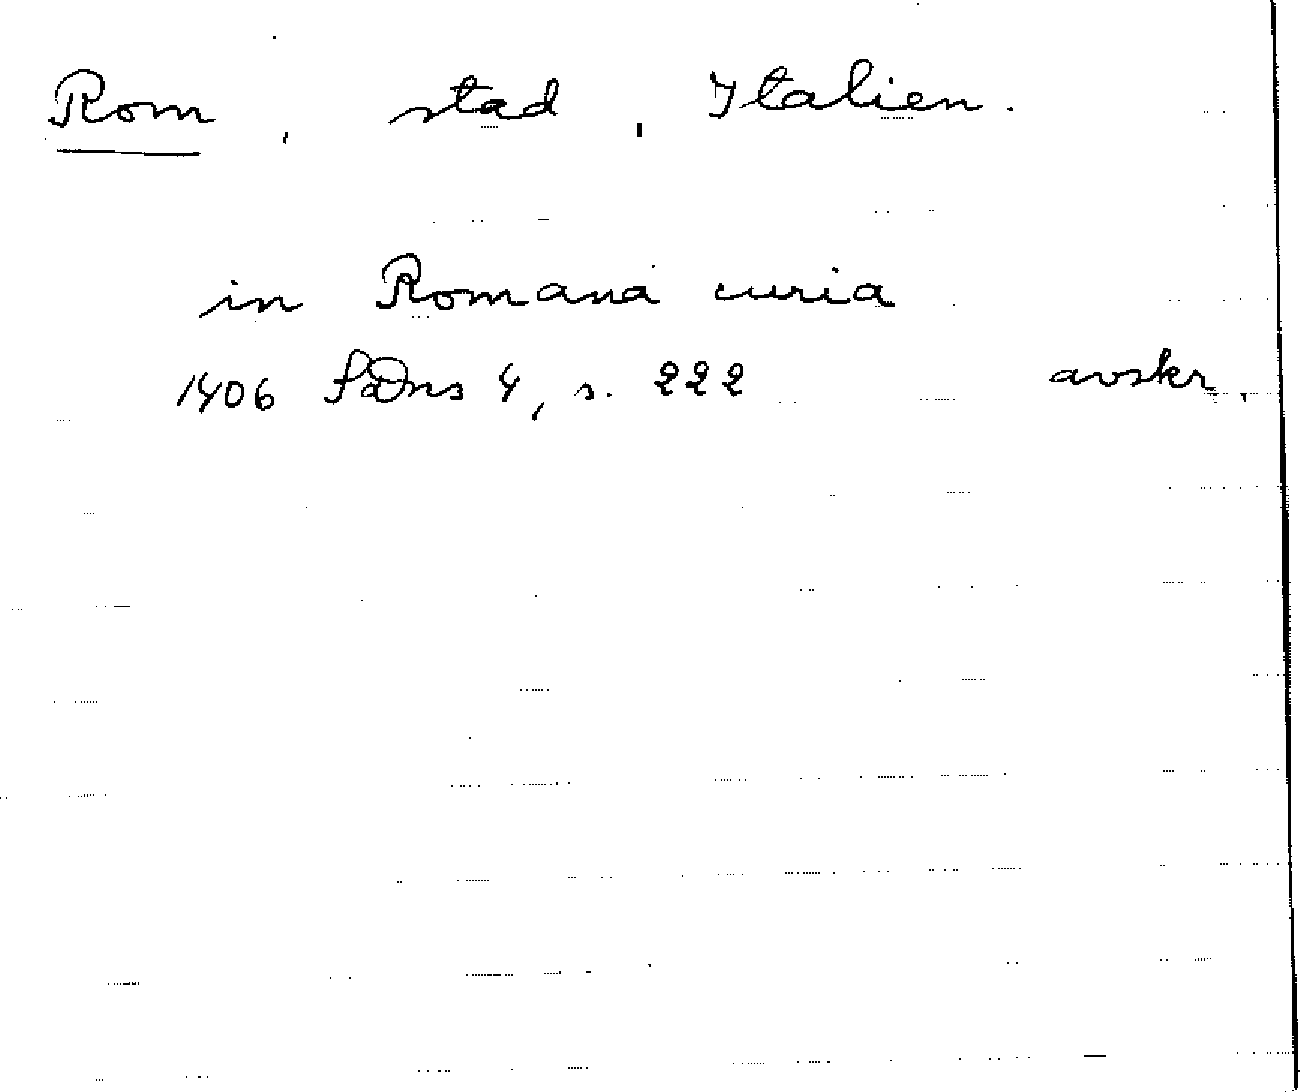 Rom, stad, Italien.
in Romana curia
1406 SDns 4, s. 222 avskr.